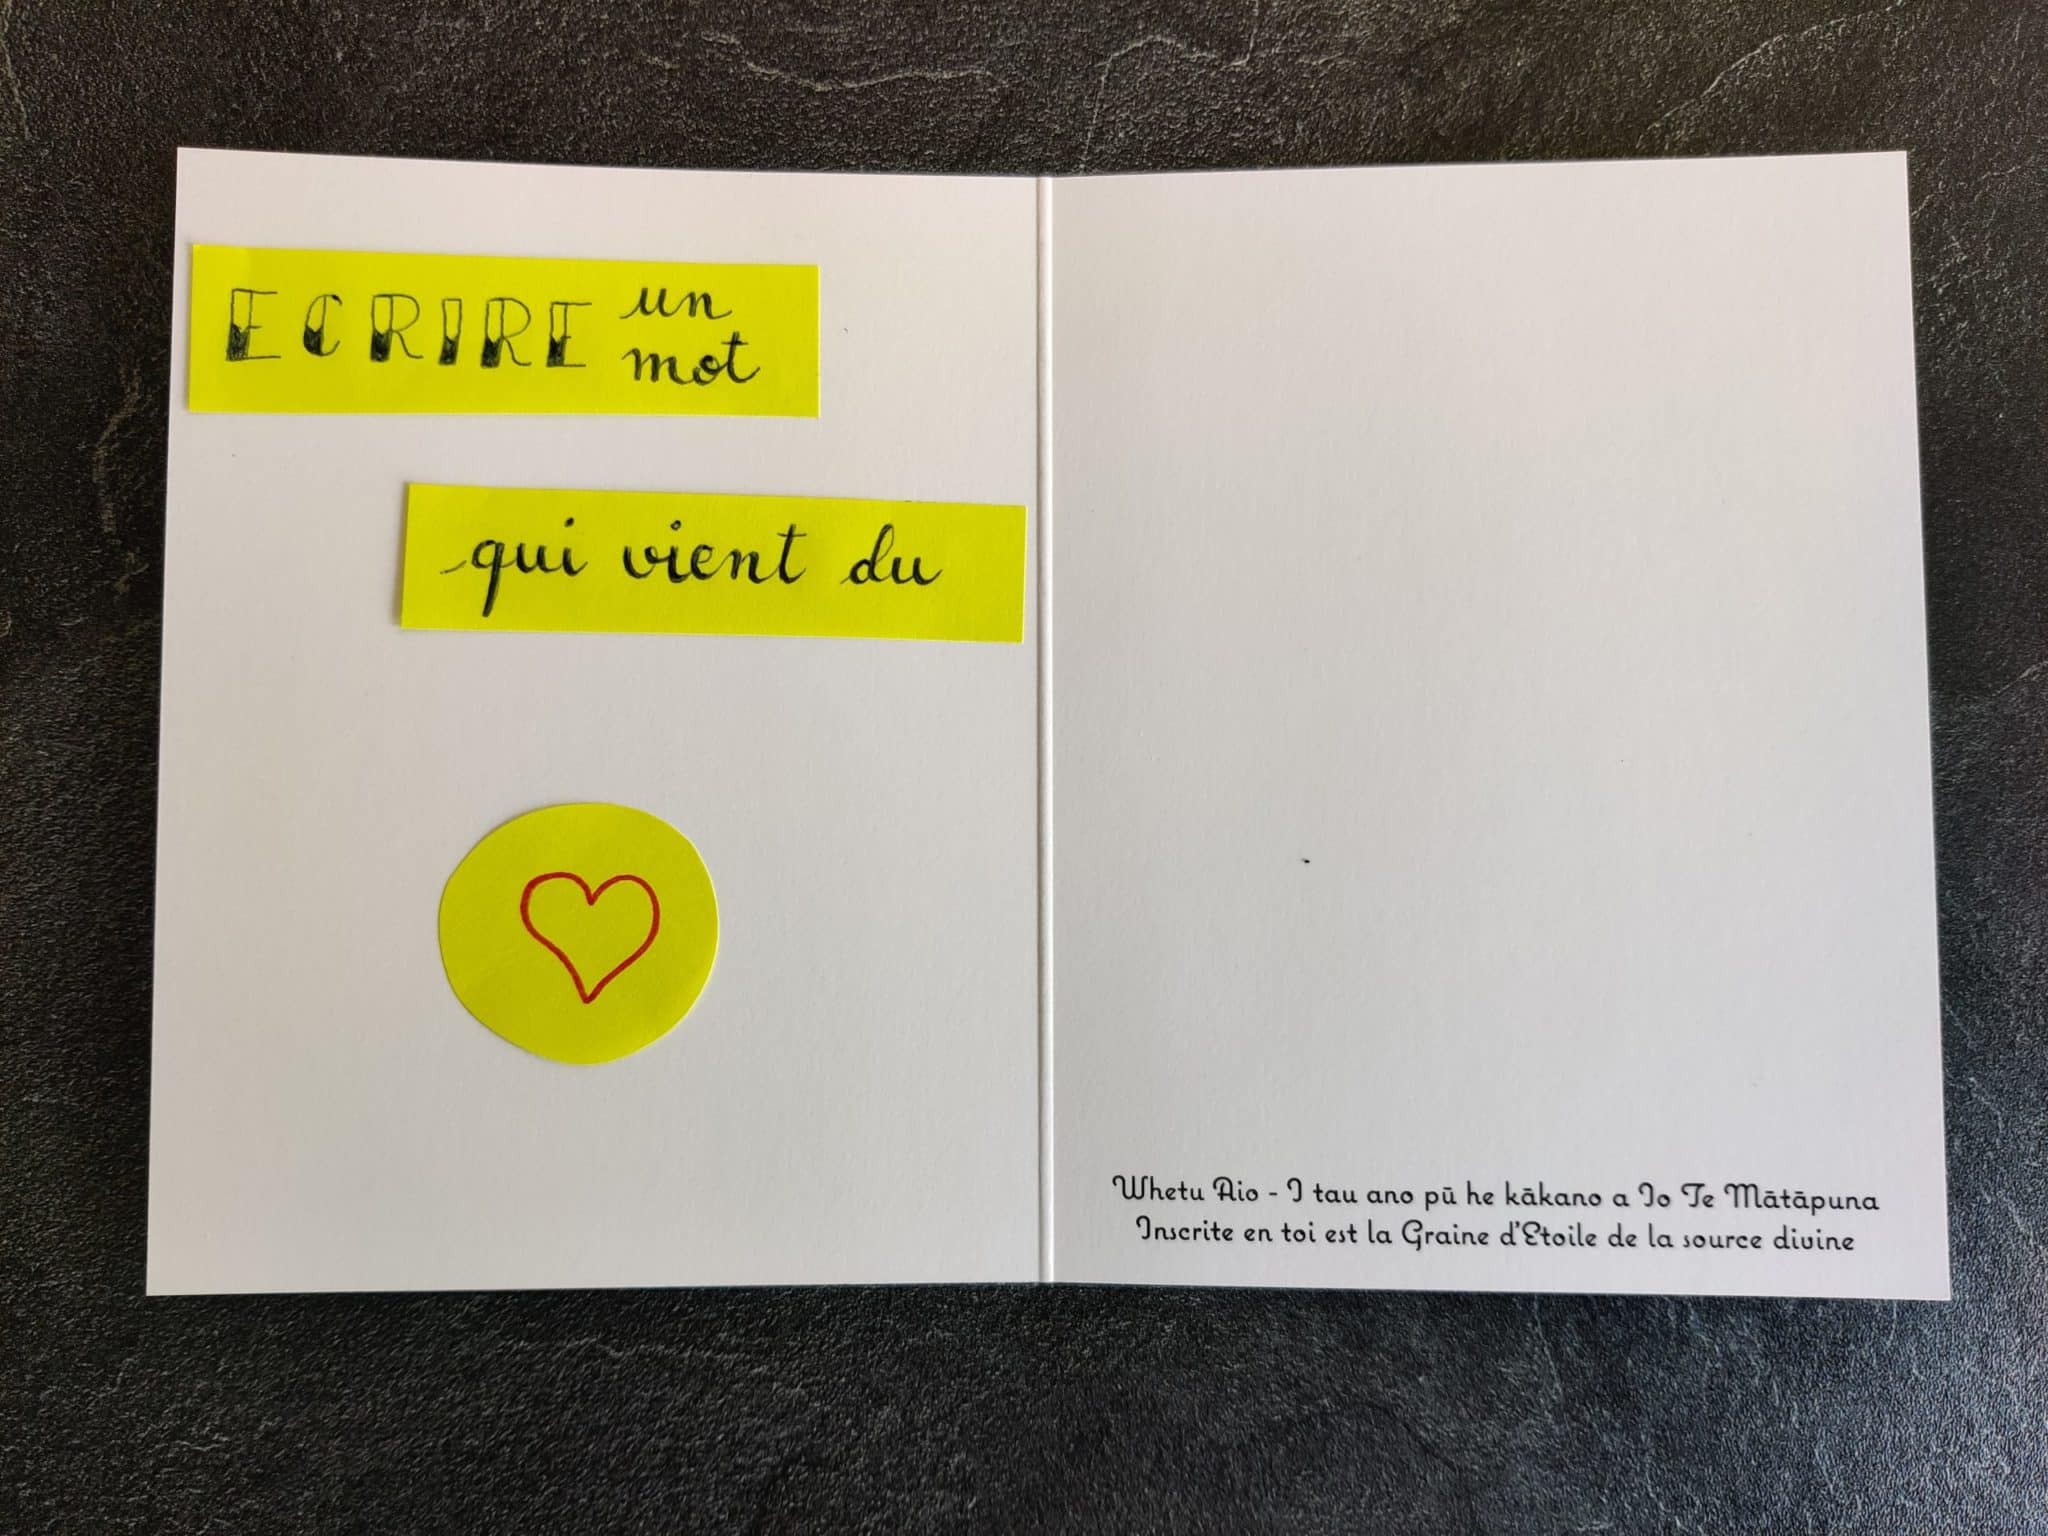 ECRIRE un
mot
qui vient du
Whetu Aio - I tau ano pū he kākano a Io Te Mātāpuna
Inscrite en toi est la Graine d'Etoile de la source divine